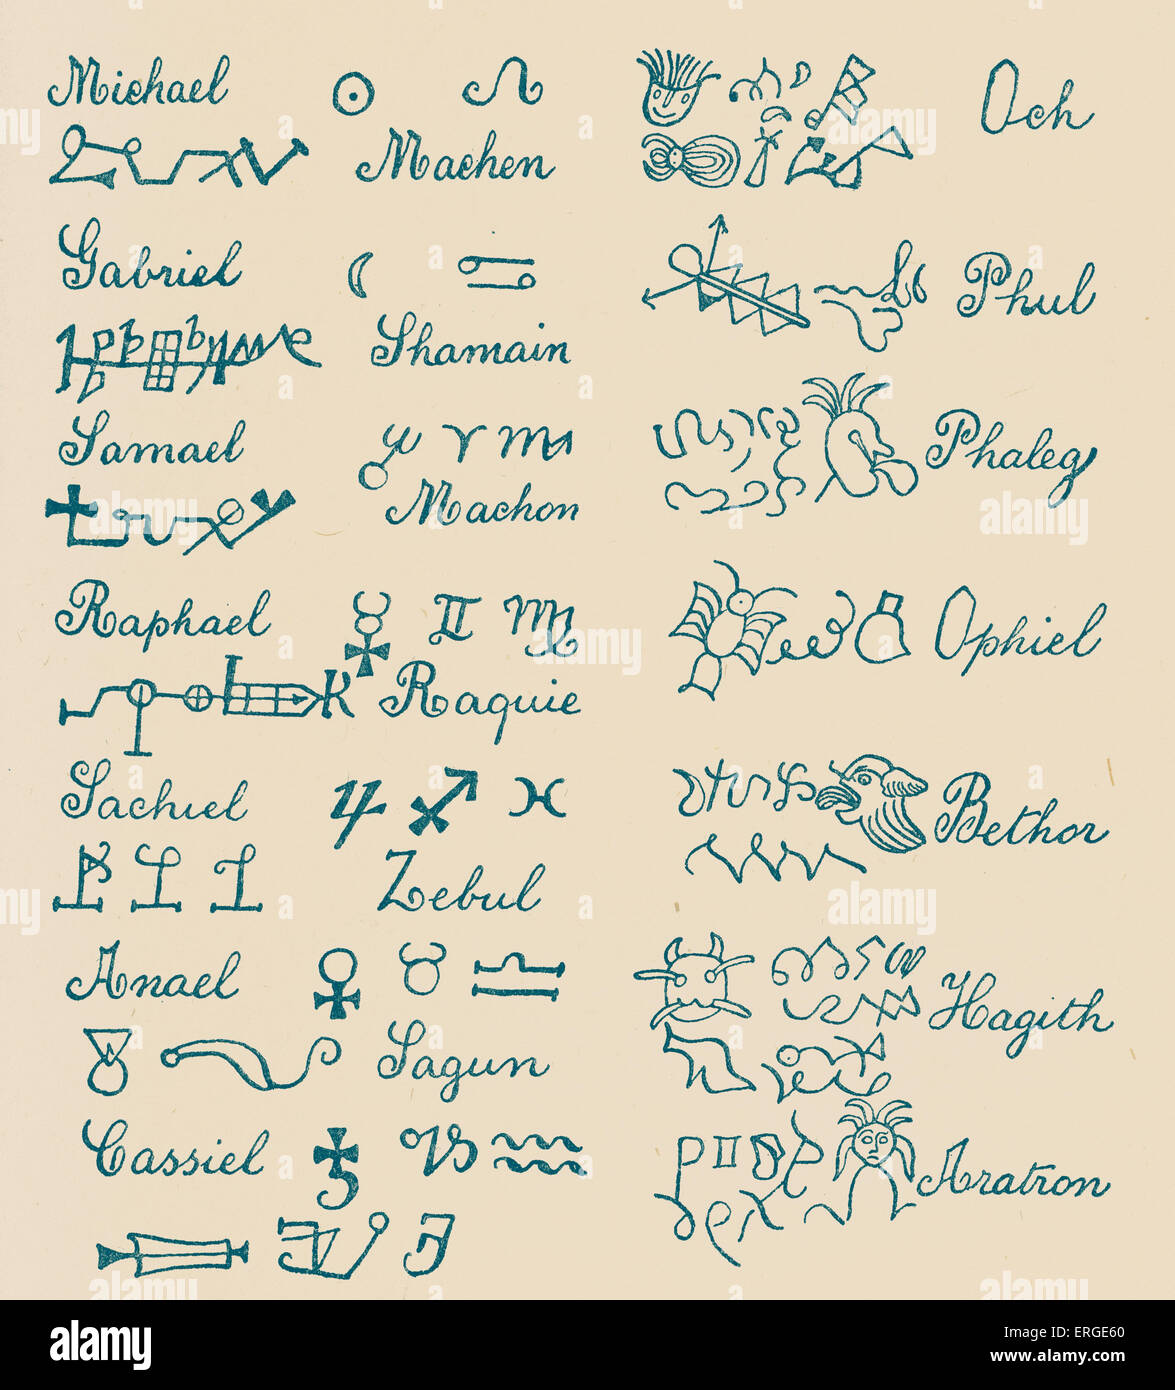 Michael ☉ ♌ Och
Machen
Gabriel ☽ ♋ Phul
Shamain
Samael ♂ ♈ ♏ Phaleg
Machon
Raphael ☿ ♊ ♍ Ophiel
Raquie
Sachiel ♃ ♐ ♓ Bethor
Zebul
Anael ♀ ♉ ♎ Hagith
Sagun
Cassiel ♄ ♑ ♒ Aratron
alamy
ERGE60
www.alamy.com